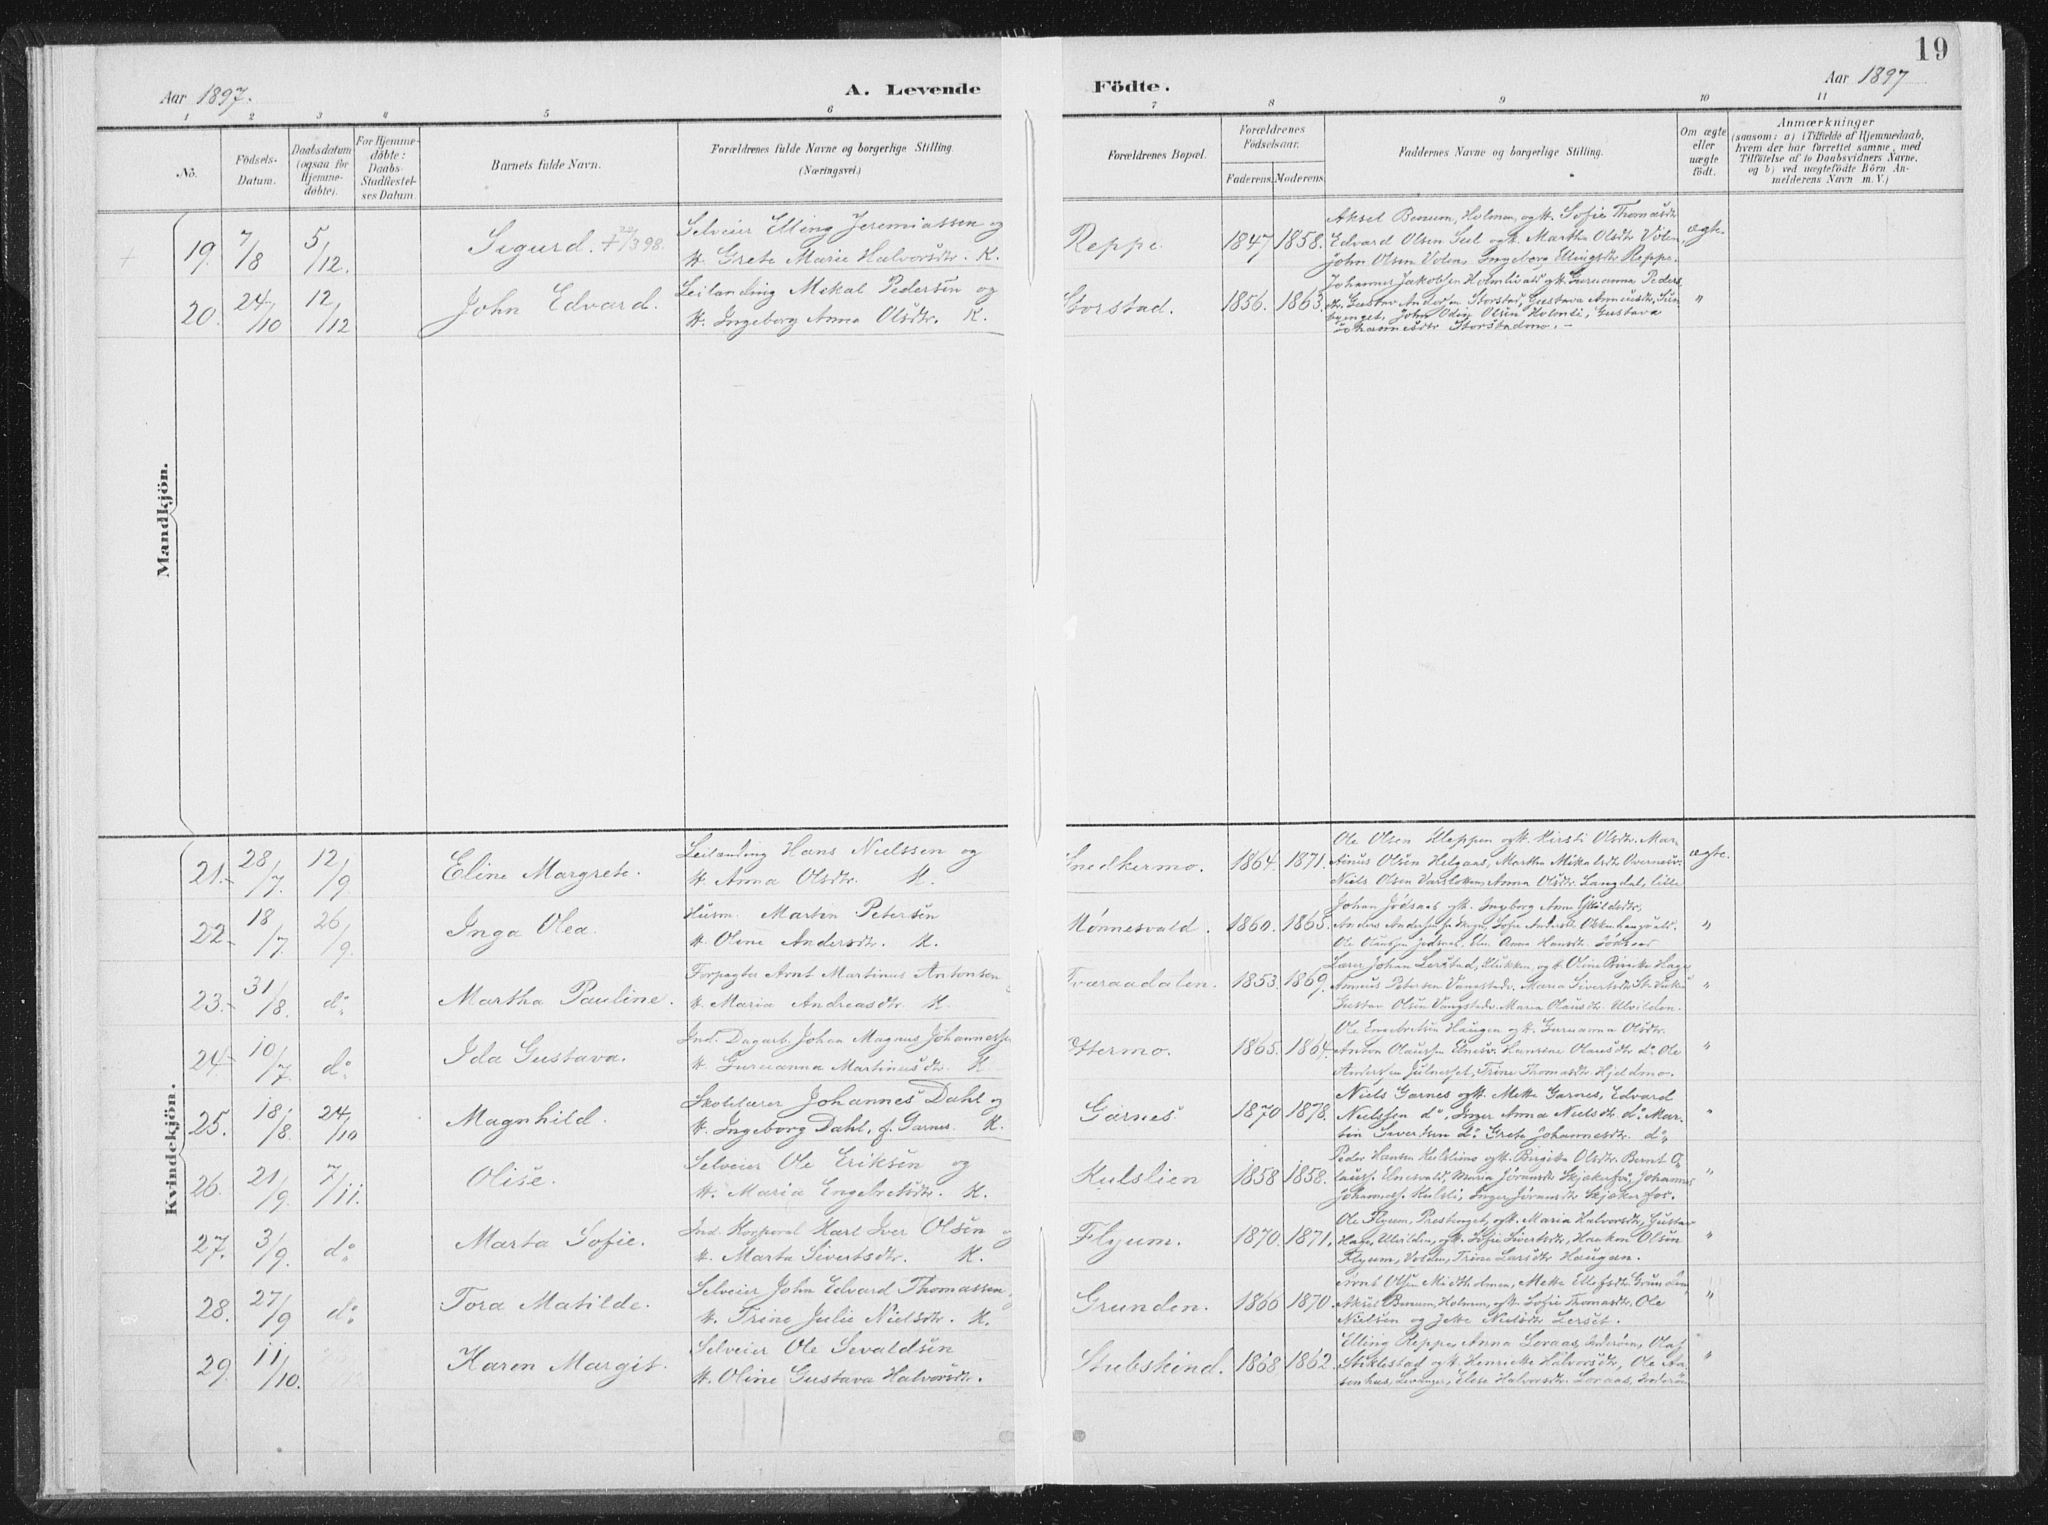 19
Aar 1897.
A. Levende
Födte.
Aar 1897
1 2 3 4 5 6 7 8 9 10 11
No.
Födsels-
Datum.
Daabsdatum
(ogsaa for
Hjemme-
döbte).
For Hjemme-
döbte:
Daabs-
Stadfæstel-
ses Datum.
Barnets fulde Navn.
Forældrenes fulde Navne og borgerlige Stilling.
(Næringsvei.)
Forældrenes Bopæl.
Forældrenes
Födselsaar.
Faderens. Moderens.
Faddernes Navne og borgerlige Stilling.
Om ægte
eller
uægte
födt.
Anmærkninger
(saasom: a) i Tilfælde af Hjemmedaab,
hvem der har forrettet samme, med
Tilföielse af to Daabsvidners Navne,
og b) ved uægtefödte Börn An-
melderens Navn m. V.)
Mandkjön.
19. 7/8 5/12. Sigurd. † 22/3 98.
Selveier Elling Jeremiassen og
H. Grete Marie Halvorsdtr. K.
Reppe 1847 1858.
Aksel Benum, Holmen, og H. Sofie Thomasdtr
Edvard Olsen Seil og H. Martha Olsdtr Volen,
John Olsen Volen, Ingeborg Ellingsdtr Reppe.
ægte.
20. 24/10 12/12 John Edvard.
Leilending Mekal Pedersen og
H. Ingeborg Anna Olsdtr. K.
Storstad. 1856. 1863.
Johannes Jakobsen Holmlivald og H. Guruanna Peders
dtr, Gustav Andersen Storstad, Gustava
John Odin Olsen Holmli, Gustava
Johannesdtr Storstadmo. –
"
Kvindekjön.
21. 28/7. 12/9. Eline Margrete.
Leilending Hans Nielssen og
H. Anna Olsdtr. K.
Snedkermo. 1864. 1871.
Ole Olsen Kleppen og H. Kirsti Olsdtr. Mar-
tinus Olsen Helgaas, Martha Mikalsdtr
Niels Olsen Anna Olsdtr. Langdal, lille
ægte.
22 18/7. 26/9. Inga Olea.
Husm. Martin Petersen
H. Oline Andersdtr. K.
Mønnesvald. 1860. 1865.
Johan og H. Ingeborg Anna
Anders Andersen Sofie Andersdtr
Ole Anna Hansdtr.
"
23. 31/8. do. Martha Pauline.
Forpagter Arnt Martinus Antonsen
H. Maria Andreasdtr. K.
Tværaadalen. 1853. 1869.
Lærer Johan Lerstad, og H. Oline Haga
Petersen Maria Sivertsdtr
Gustav Olsen Maria Olausdtr. Ulvilden.
"
24 10/7. do. Ida Gustava.
Ind. Dagarb. Johan Magnus Johannessen
H. Guruanna Martinusdtr. K.
Ottermo. 1865. 1864.
Ole Engebretsen Haugen og H. Guruanna Olsdtr.
Anton Olaussen Hansine Olausdtr do Ole
Anderssen Julneset, Trine Thomasdtr. Hjeldmo.
"
25. 18/8. 24/10 Magnhild.
Skolelærer Johannes Dahl og
H. Ingeborg Dahl, f. Garnes. K.
Garnes 1870 1878.
Niels Garnes og H. Mette Garnes, Edvard
Nielssen do, Inger Anna Nielsdtr do Mar-
tin Sivertsen do. Grete Johannesdtr. do.
"
26. 21/9. 7/11. Olise.
Selveier Ole Eriksen og
H. Maria Engebretsdtr. K.
Kulslien 1858 1858.
Peder Hansen Kulslimo og H. Birgitta Olsdtr. Bernt O-
lauss. Maria Jøransdtr Skjækerfos, Johannes
Johanness. Kulsli, Inger Jøransdtr Skjækerfos.
"
27. 3/9. do. Marta Sofie.
Ind. Korporal Karl Iver Olsen og
H. Marta Sivertsdtr. K.
Flyum. 1870. 1871.
Ole Flyum, Prestheget, og H. Maria Halvorsdtr, Gustav
Haga, Ulvilden, og H. Sofie Sivertsdtr, Haakon Olsen
Flyum, Volden, Trine Larsdtr Haugan.
"
28. 27/9 do. Tora Matilde.
Selveier John Edvard Thomassen.
H. Trine Julie Nielsdtr. K.
Grunden. 1866 1870.
Arnt Olsen Midtholmen, Mette Ellefsdtr Grunden,
Aksel Benum, Holmen, og H. Sofie Thomasdtr. Ole
Nielsen og Jette Nielsdtr Lerset.
"
29. 11/10. Karen Margit.
Selveier Ole Sevaldsen
H. Oline Gustava Halvorsdtr.
Stubskind. 1868 1862.
Elling Reppe, Anna Loraas, Inderøen, Olaf
Stiklestad og H. Henriette Halvorsdtr, Ole Aa-
senhus, Levanger, Elise Halvorsdtr. Loraas, Inderøen
"